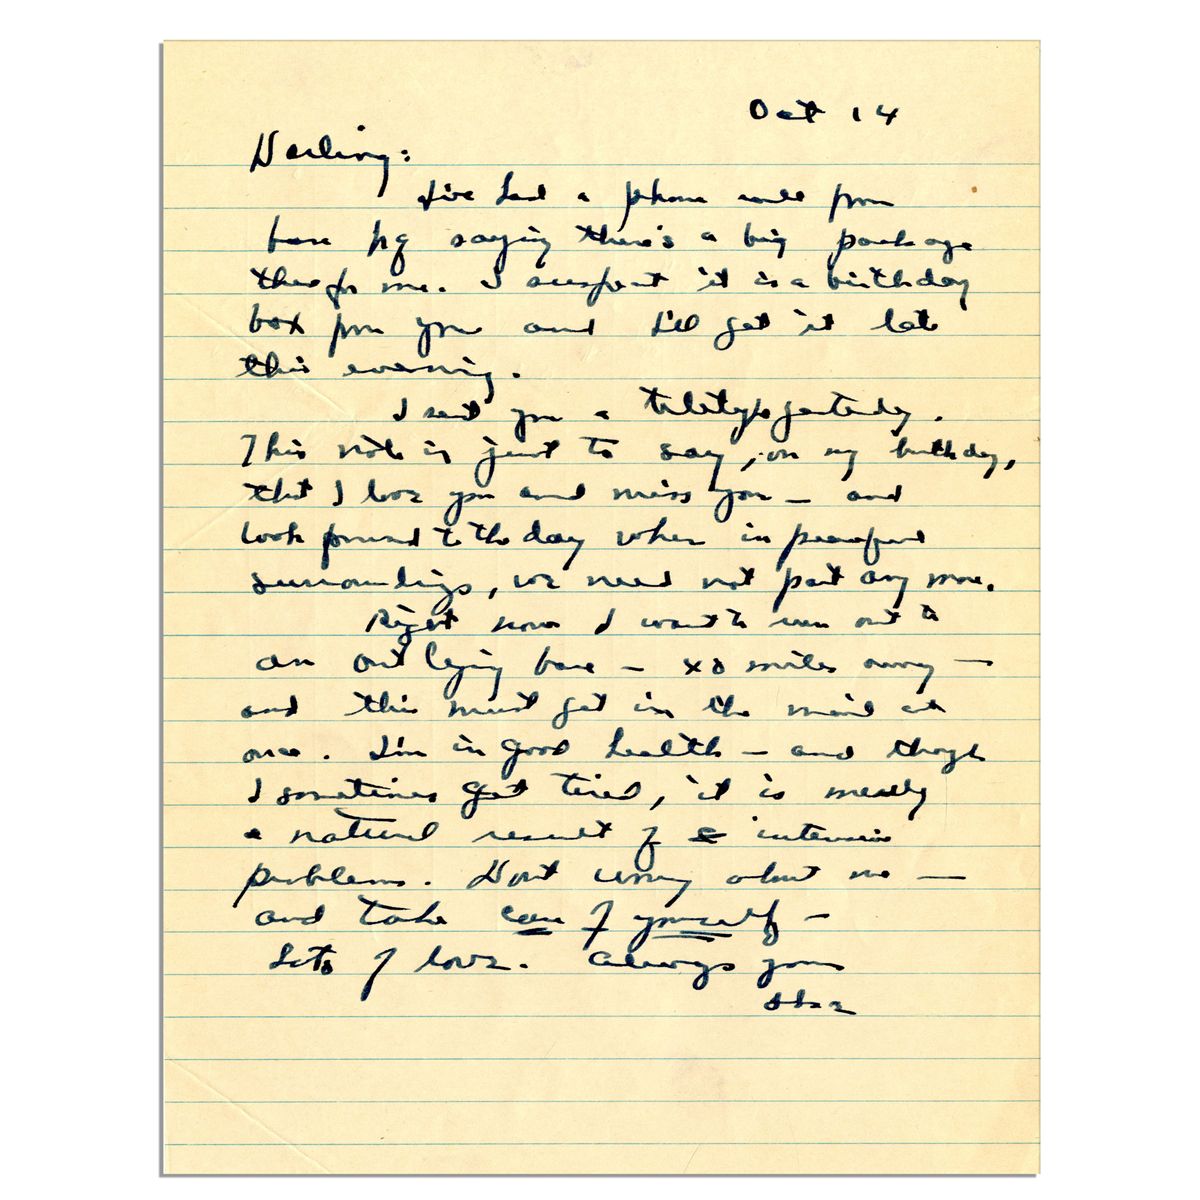 Oct 14
Darling:
I've had a phone call from
base hq saying there's a big package
there for me. I suspect it is a birthday
box from you and I'll get it late
this evening.
I sent you a teletype yesterday.
This note is just to say, on my birthday,
that I love you and miss you — and
look forward to the day when in peaceful
surroundings, we need not part any more.
Right now I want to run out to
an outlying base — miles away —
and this must get in the mail at
once. I'm in good health — and though
I sometimes get tired, it is merely
a natural result of intensive
problems. Don't worry about me —
and take care of yourself —
Lots of love. Always yours
Ike